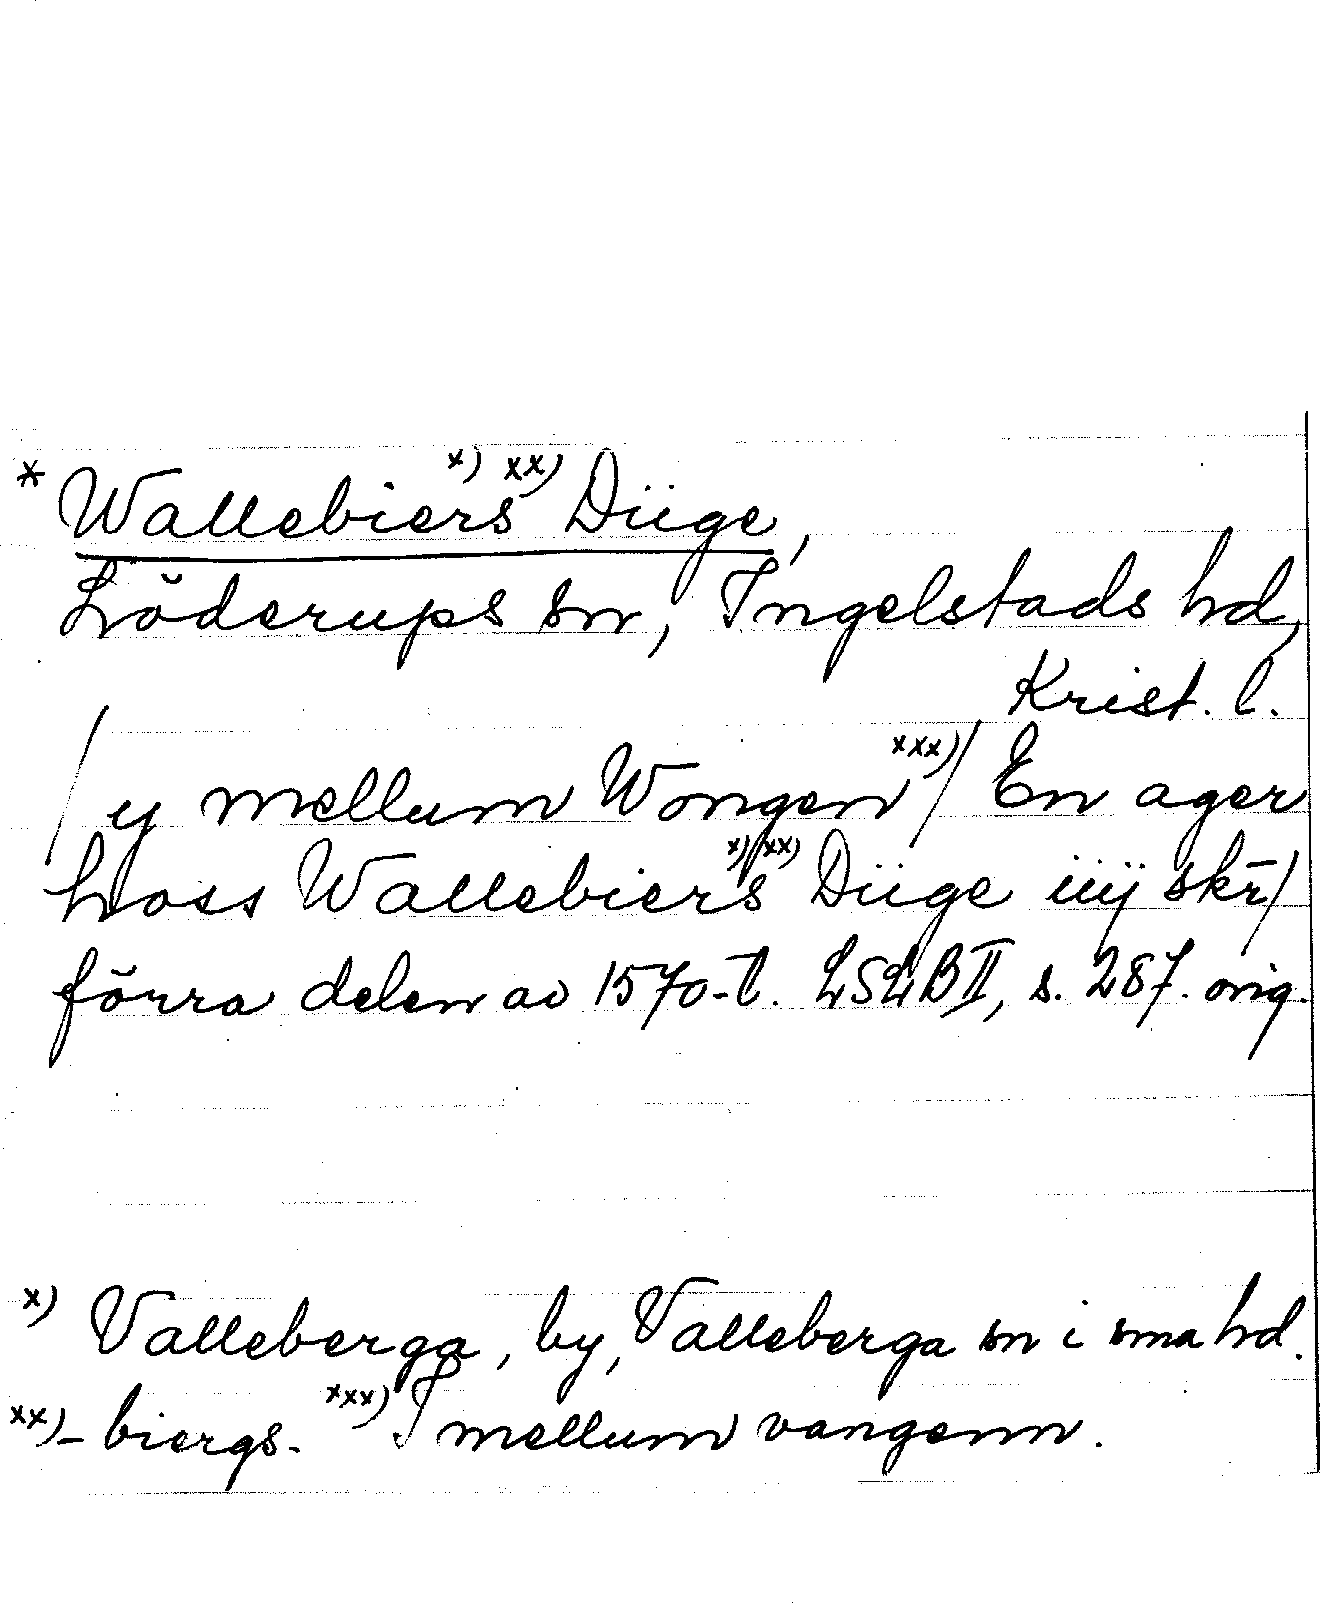 * Wallebiers x) xx) Diige,
Löderups sn, Ingelstads hd,
Krist. l.
/ y mellum Wongen xxx) / En ager
hoss Wallebiers x) xx) Diige iiij skr̄ /
förra delen av 1570-t. LSLB II, s. 287. orig.
x) Valleberga, by, Valleberga sn i sma hd.
xx) - biergs - xxx) I mellum vangenn.